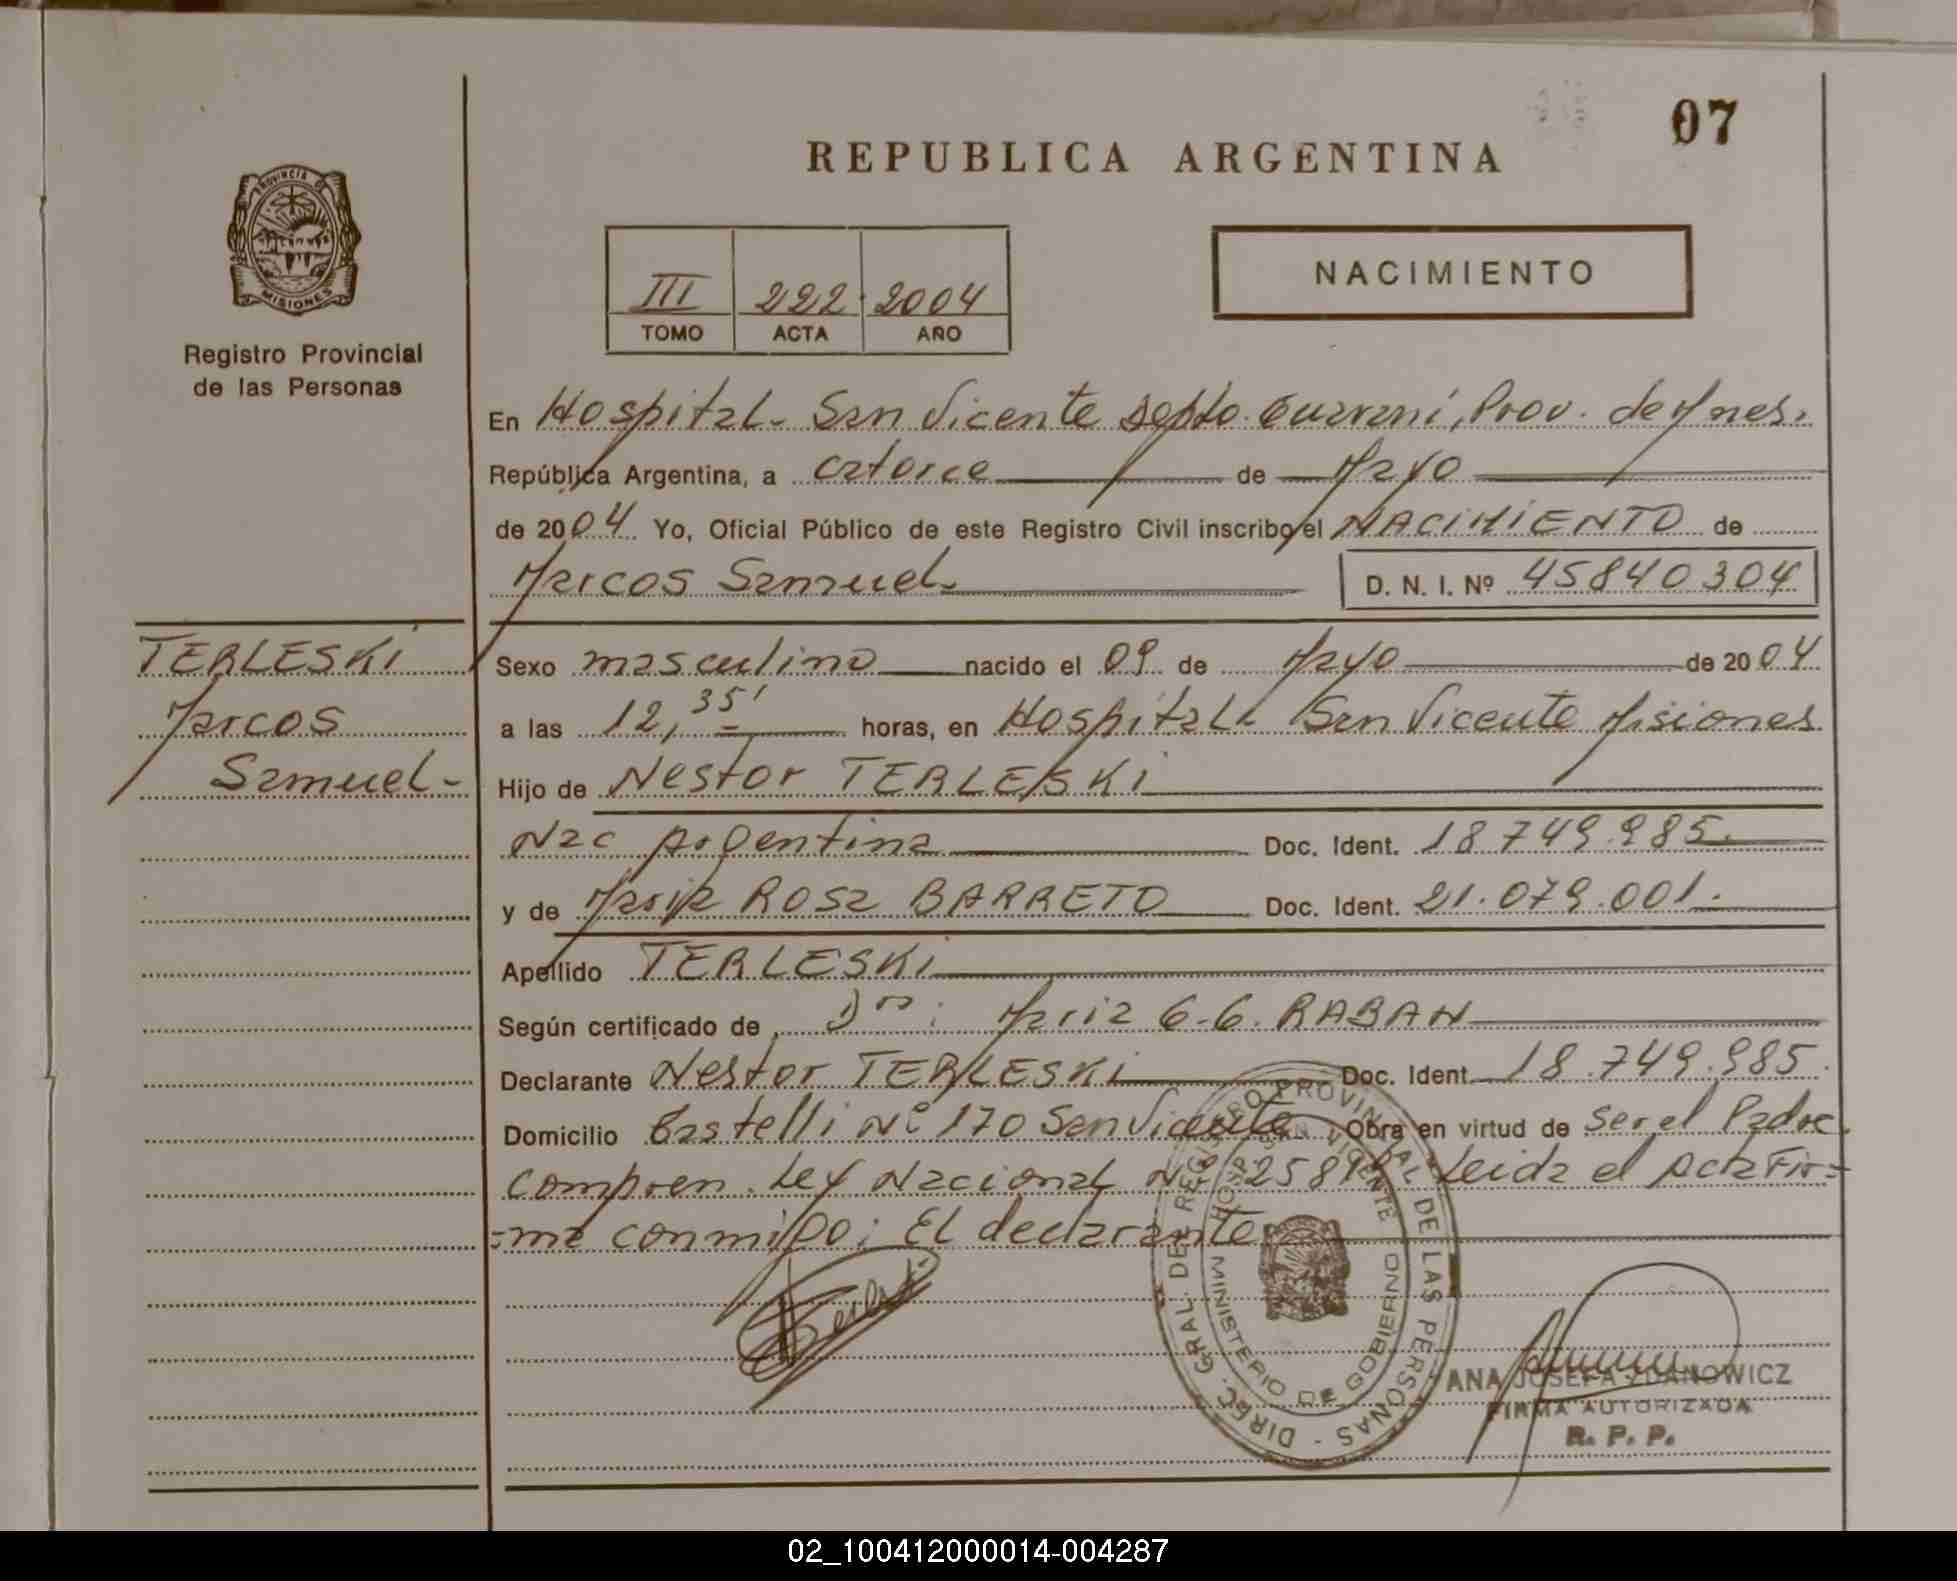 07
REPUBLICA ARGENTINA
PROVINCIA DE
MISIONES
Registro Provincial
de las Personas
III 222 2004
TOMO ACTA AÑO
NACIMIENTO
En Hospital - San Vicente Depto. Guarani, Prov. de Mnes.
República Argentina, a catorce de Mayo
de 2004 Yo, Oficial Público de este Registro Civil inscribo el NACIMIENTO de
Marcos Samuel - D. N. I. Nº 45840304
TERLESKI
Marcos
Samuel -
Sexo masculino nacido el 09 de Mayo de 2004
a las 12, 35' horas, en Hospital San Vicente Misiones
Hijo de Nestor TERLESKI
Nac Argentina Doc. Ident. 18.749.985.
y de Maria Rosa BARRETO Doc. Ident. 21.079.001.
Apellido TERLESKI
Según certificado de Dra: Maria G. G. RABAN
Declarante Nestor TERLESKI Doc. Ident. 18.749.985.
Domicilio Castelli Nº 170 San Vicente Obra en virtud de ser el Padre.
Compren. Ley Nacional Nº Leida el Acta Fir=
=ma conmigo: El declarante
DIREC. GRAL. DEL REGISTRO PROVINCIAL DE LAS PERSONAS -
HOSP. SAN VICENTE
MINISTERIO DE GOBIERNO
ANA JOSEFA ZDANOWICZ
FIRMA AUTORIZADA
R. P. P.
02_100412000014-004287